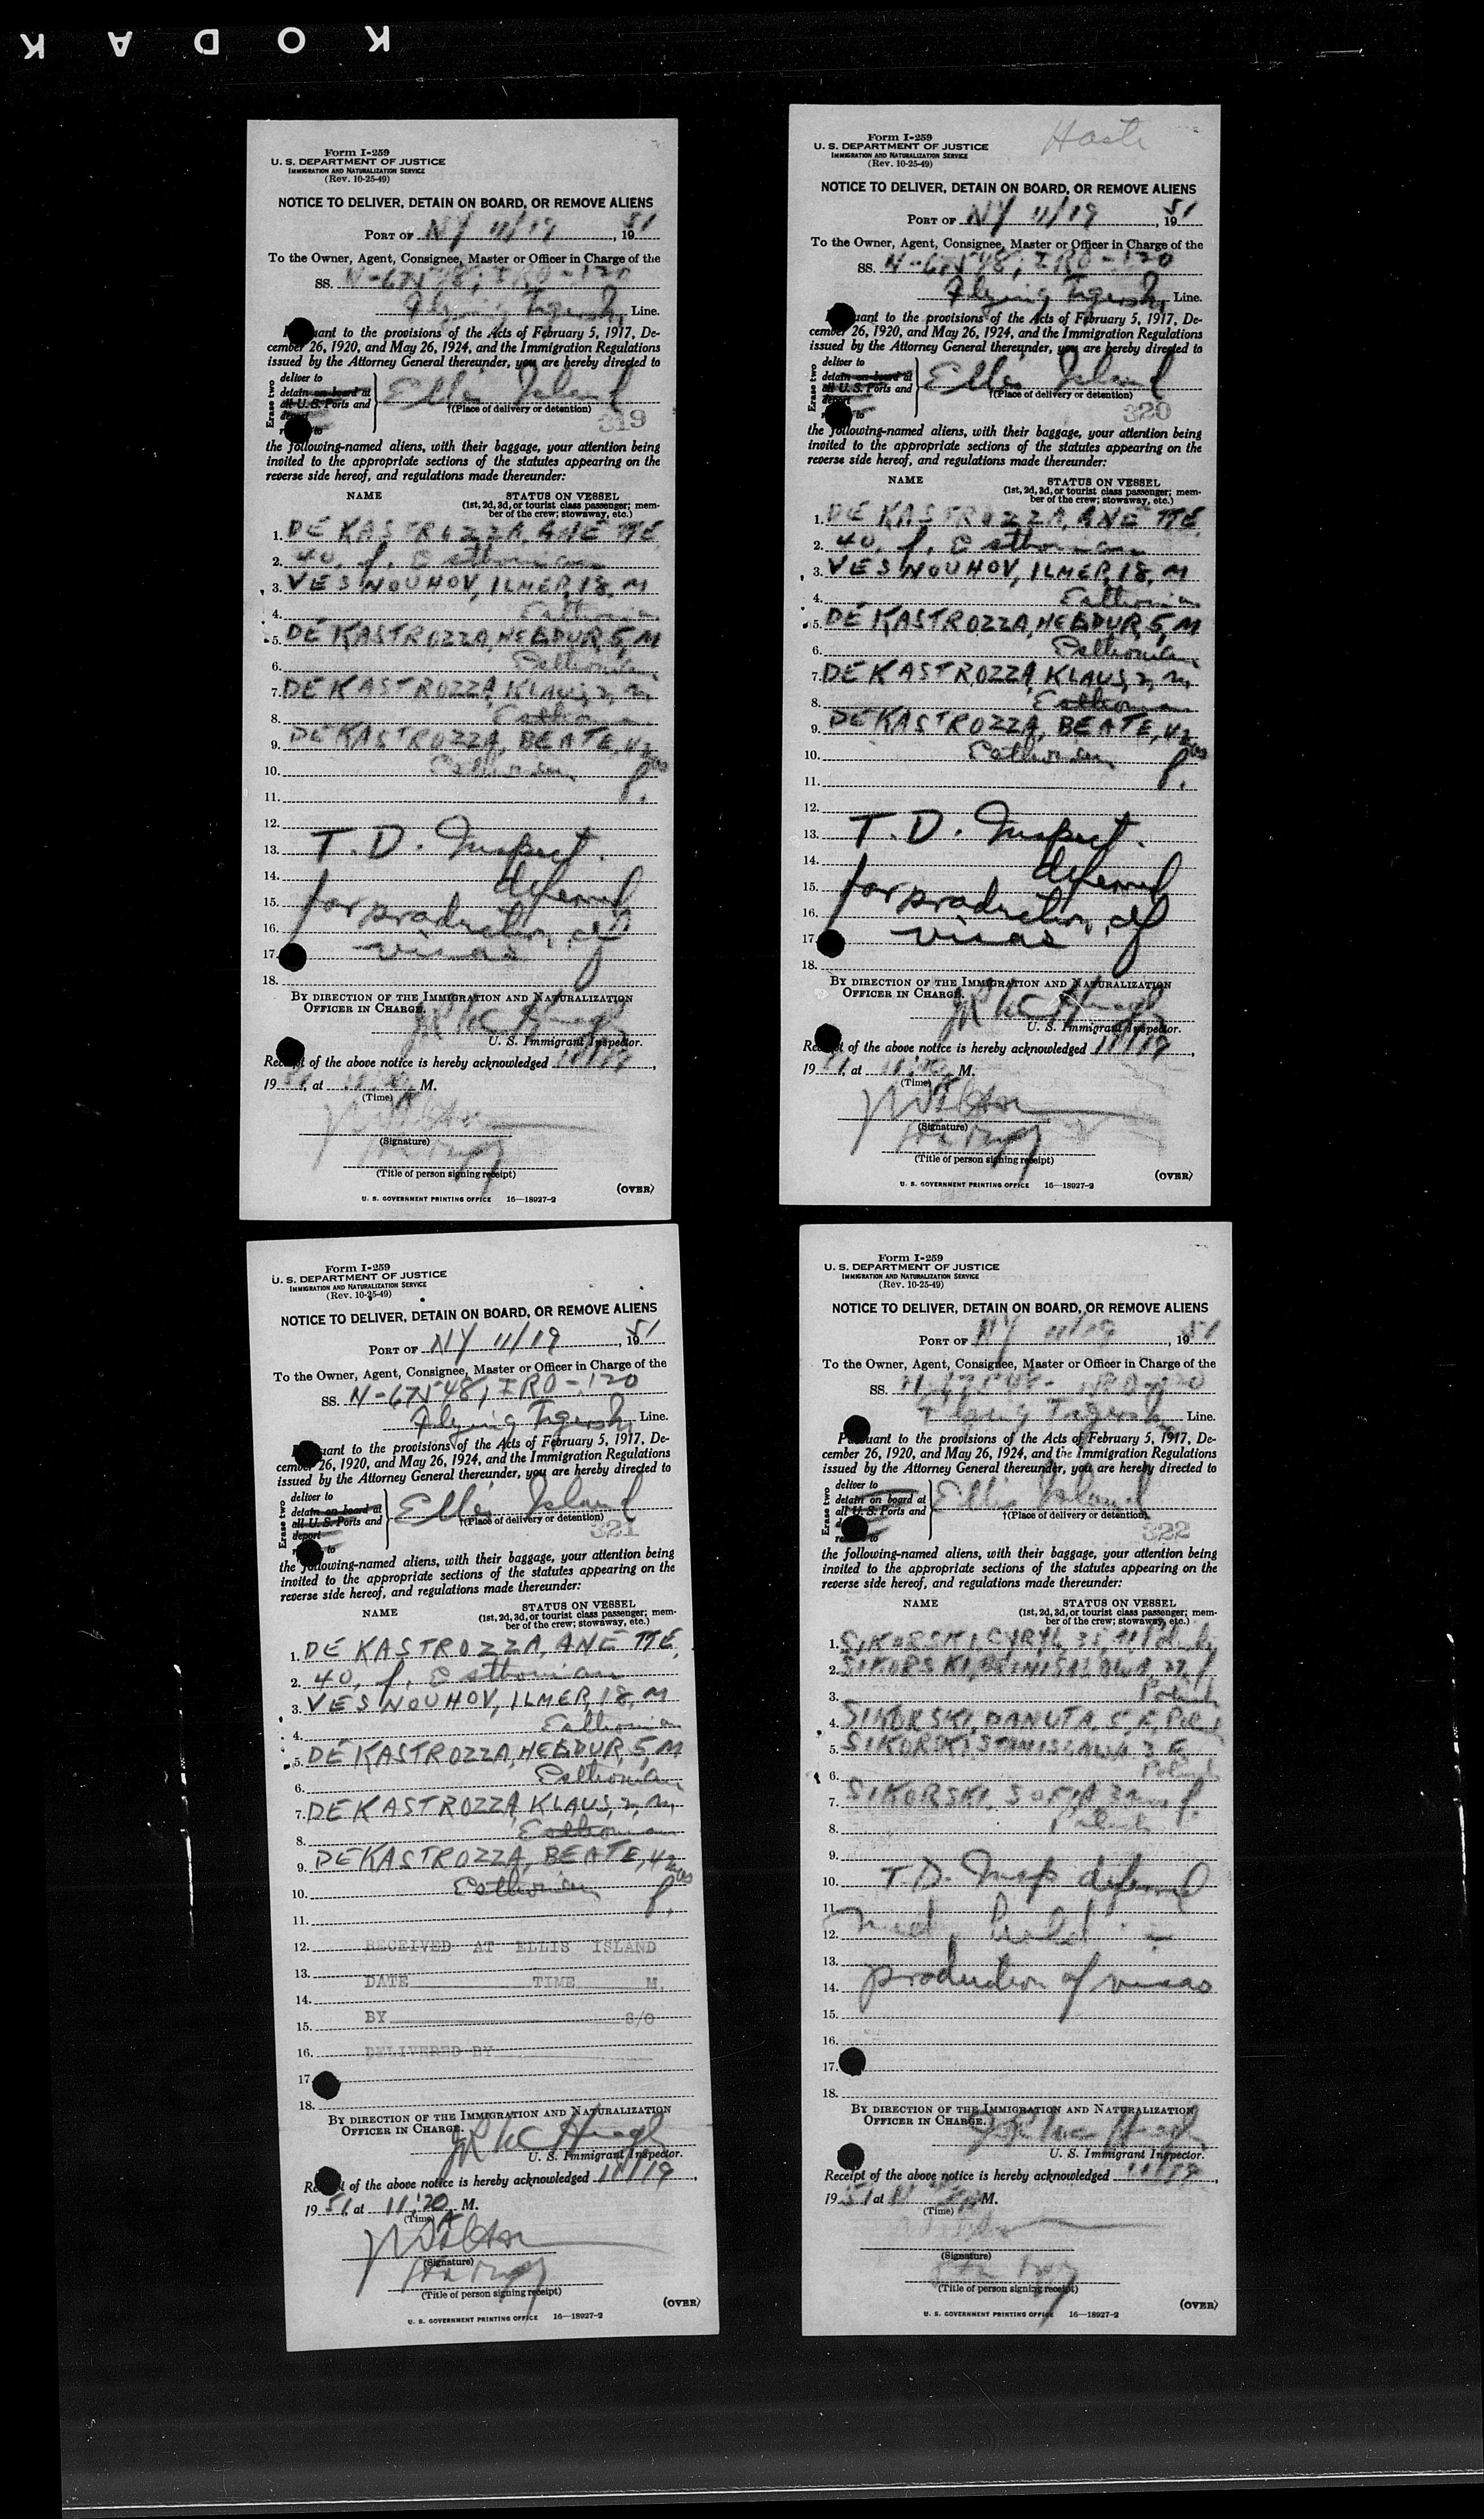 KODAK
Form I-259
U. S. DEPARTMENT OF JUSTICE
IMMIGRATION AND NATURALIZATION SERVICE
(Rev. 10-25-49)
NOTICE TO DELIVER, DETAIN ON BOARD, OR REMOVE ALIENS
PORT OF NY 11/19, 1951
To the Owner, Agent, Consignee, Master or Officer in Charge of the
SS. N-67548; IRO-120
Flying Tigers Line.
uant to the provisions of the Acts of February 5, 1917, De-
cember 26, 1920, and May 26, 1924, and the Immigration Regulations
issued by the Attorney General thereunder, you are hereby directed to
Erase two
deliver to
detain on board at
all U. S. Ports and
deport
to
Ellis Island
†(Place of delivery or detention)
319
the following-named aliens, with their baggage, your attention being
invited to the appropriate sections of the statutes appearing on the
reverse side hereof, and regulations made thereunder:
NAME STATUS ON VESSEL
(1st, 2d, 3d, or tourist class passenger; mem-
ber of the crew; stowaway, etc.)
1. DE KASTROZZA, ANETTE,
2. 40, f, Esthonian
3. VESNOUHOV, ILMER, 18, M
4. Esthonian
5. DE KASTROZZA, HEEDUR, 5, M
6. Esthonian
7. DE KASTROZZA, KLAUS, 2, m,
8. Esthonian
9. DE KASTROZZA, BEATE, 4
10. Esthonian f.
11.
12.
13. T. D. Inspect.
14. deferred
15. for production of
16.
17. visas
18.
BY DIRECTION OF THE IMMIGRATION AND NATURALIZATION
OFFICER IN CHARGE.
U. S. Immigrant Inspector.
Receipt of the above notice is hereby acknowledged 11/19,
1951, at 11:20 A M.
(Time)
(Signature)
(Title of person signing receipt)
(OVER)
U. S. GOVERNMENT PRINTING OFFICE 16—18927-2
Haste
Form I-259
U. S. DEPARTMENT OF JUSTICE
IMMIGRATION AND NATURALIZATION SERVICE
(Rev. 10-25-49)
NOTICE TO DELIVER, DETAIN ON BOARD, OR REMOVE ALIENS
PORT OF NY 11/19, 1951
To the Owner, Agent, Consignee, Master or Officer in Charge of the
SS. N-67548; IRO-120
Flying Tigers Line.
uant to the provisions of the Acts of February 5, 1917, De-
cember 26, 1920, and May 26, 1924, and the Immigration Regulations
issued by the Attorney General thereunder, you are hereby directed to
Erase two
deliver to
detain on board at
all U. S. Ports and
to
Ellis Island
†(Place of delivery or detention)
320
the following-named aliens, with their baggage, your attention being
invited to the appropriate sections of the statutes appearing on the
reverse side hereof, and regulations made thereunder:
NAME STATUS ON VESSEL
(1st, 2d, 3d, or tourist class passenger; mem-
ber of the crew; stowaway, etc.)
1. DE KASTROZZA, ANETTE,
2. 40, f, Esthonian
3. VESNOUHOV, ILMER, 18, M
4. Esthonian
5. DE KASTROZZA, HEEDUR, 5, M
6. Esthonian
7. DE KASTROZZA, KLAUS, 2, m,
8. Esthonian
9. DE KASTROZZA, BEATE, 4
10. Esthonian f.
11.
12.
13. T. D. Inspect.
14. deferred
15. for production of
16.
17. visas
18.
BY DIRECTION OF THE IMMIGRATION AND NATURALIZATION
OFFICER IN CHARGE.
U. S. Immigrant Inspector.
Receipt of the above notice is hereby acknowledged 11/19,
1951, at 11:20 A M.
(Time)
(Signature)
(Title of person signing receipt)
(OVER)
U. S. GOVERNMENT PRINTING OFFICE 16—18927-2
Form I-259
U. S. DEPARTMENT OF JUSTICE
IMMIGRATION AND NATURALIZATION SERVICE
(Rev. 10-25-49)
NOTICE TO DELIVER, DETAIN ON BOARD, OR REMOVE ALIENS
PORT OF NY 11/19, 1951
To the Owner, Agent, Consignee, Master or Officer in Charge of the
SS. N-67548; IRO-120
Flying Tigers Line.
uant to the provisions of the Acts of February 5, 1917, De-
cember 26, 1920, and May 26, 1924, and the Immigration Regulations
issued by the Attorney General thereunder, you are hereby directed to
Erase two
deliver to
detain on board at
all U. S. Ports and
deport
to
Ellis Island
†(Place of delivery or detention)
321
the following-named aliens, with their baggage, your attention being
invited to the appropriate sections of the statutes appearing on the
reverse side hereof, and regulations made thereunder:
NAME STATUS ON VESSEL
(1st, 2d, 3d, or tourist class passenger; mem-
ber of the crew; stowaway, etc.)
1. DE KASTROZZA, ANETTE,
2. 40, f, Esthonian
3. VESNOUHOV, ILMER, 18, M
4. Esthonian
5. DE KASTROZZA, HEEDUR, 5, M
6. Esthonian
7. DE KASTROZZA, KLAUS, 2, m,
8. Esthonian
9. DE KASTROZZA, BEATE, 4
10. Esthonian f.
11.
12. RECEIVED AT ELLIS ISLAND
13. DATE TIME M.
14.
15. BY S/O
16. DELIVERED BY
17.
18.
BY DIRECTION OF THE IMMIGRATION AND NATURALIZATION
OFFICER IN CHARGE.
U. S. Immigrant Inspector.
Receipt of the above notice is hereby acknowledged 11/19,
1951, at 11:20 A M.
(Time)
(Signature)
(Title of person signing receipt)
(OVER)
U. S. GOVERNMENT PRINTING OFFICE 16—18927-2
Form I-259
U. S. DEPARTMENT OF JUSTICE
IMMIGRATION AND NATURALIZATION SERVICE
(Rev. 10-25-49)
NOTICE TO DELIVER, DETAIN ON BOARD, OR REMOVE ALIENS
PORT OF NY 11/19, 1951
To the Owner, Agent, Consignee, Master or Officer in Charge of the
SS. N-67548- IRO-120
Flying Tigers Line.
Pursuant to the provisions of the Acts of February 5, 1917, De-
cember 26, 1920, and May 26, 1924, and the Immigration Regulations
issued by the Attorney General thereunder, you are hereby directed to
Erase two
deliver to
detain on board at
all U. S. Ports and
to
Ellis Island
†(Place of delivery or detention)
322
the following-named aliens, with their baggage, your attention being
invited to the appropriate sections of the statutes appearing on the
reverse side hereof, and regulations made thereunder:
NAME STATUS ON VESSEL
(1st, 2d, 3d, or tourist class passenger; mem-
ber of the crew; stowaway, etc.)
1. SIKORSKI, CYRYL, 35, M Polish
2. SIKORSKI, BRONISLAWA, 27, f
3. Polish
4. SIKORSKI, DANUTA, 5, F, Polish
5. SIKORSKI STANISLAWA 3 F
6. Polish
7. SIKORSKI, SOFIA f.
8. Polish
9.
10. T.D. Insp deferred
11.
12. Med. hold
13.
14. production of visas
15.
16.
17.
18.
BY DIRECTION OF THE IMMIGRATION AND NATURALIZATION
OFFICER IN CHARGE.
U. S. Immigrant Inspector.
Receipt of the above notice is hereby acknowledged 11/19,
1951 at 11 M.
(Time)
(Signature)
(Title of person signing receipt)
(OVER)
U. S. GOVERNMENT PRINTING OFFICE 16—18927-2